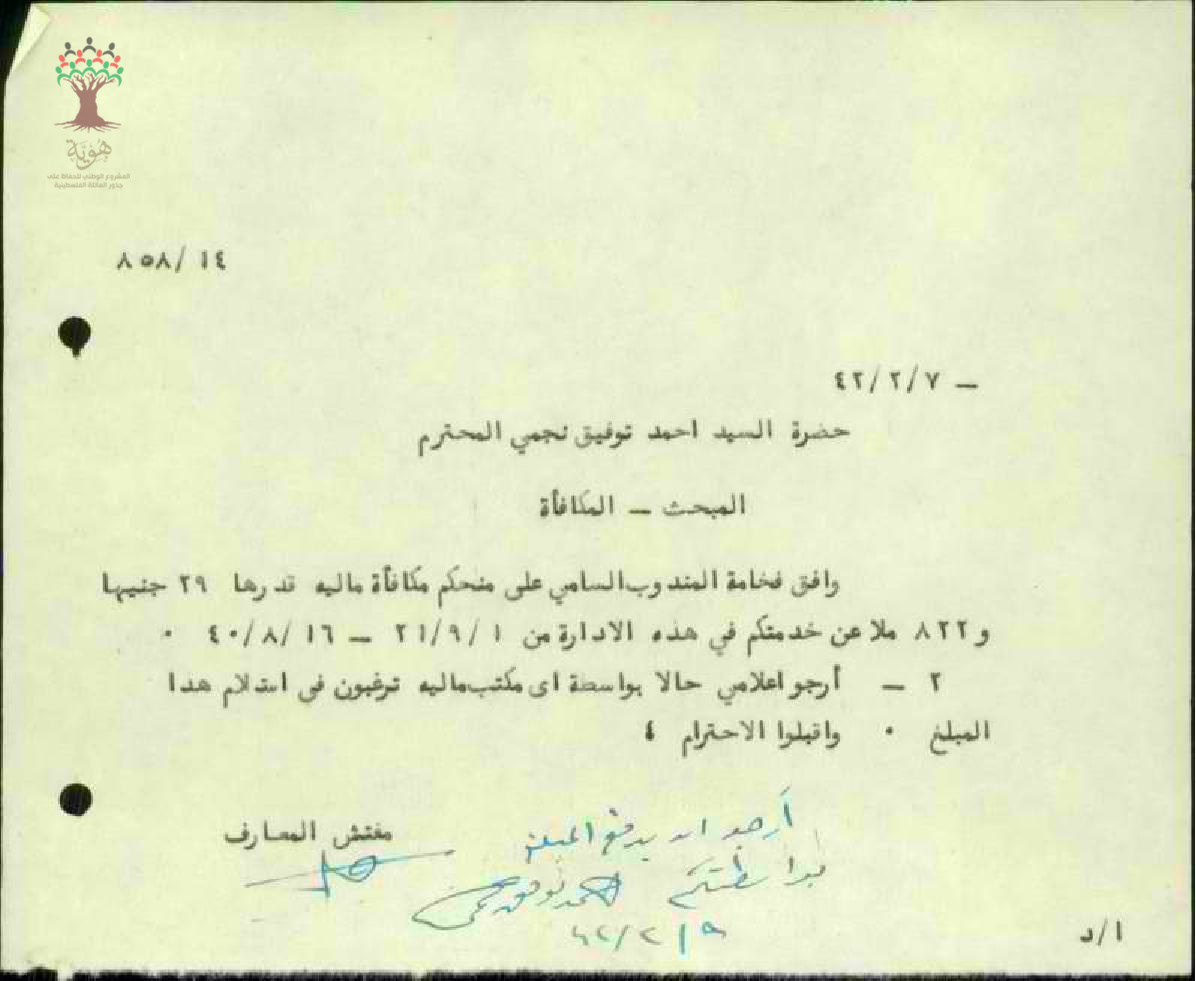 هوية
المشروع الوطني للحفاظ على
جذور العائلة الفلسطينية
٨٥٨/ ١٤
ـ ٤٢/٢/٧
حضرة السيد احمد توفيق نجمي المحترم
المبحث ـ المكافأة
وافق فخامة المندوب السامي على منحكم مكافأة ماليه قدرها ٢٩ جنيها
و٨٢٢ ملا عن خدمتكم في هذه الادارة من ٢١/٩/١ ـ ٤٠/٨/١٦ ٠
٢ ـ أرجو اعلامي حالا بواسطة اى مكتب ماليه ترغبون فى استلام هدا
المبلغ ٠ واقبلوا الاحترام ٤
مفتش المعارف
أرجو ان يدفع المبلغ
بواسطتكم احمد توفيق نجمي
٤٢/٢/٩
ا/د